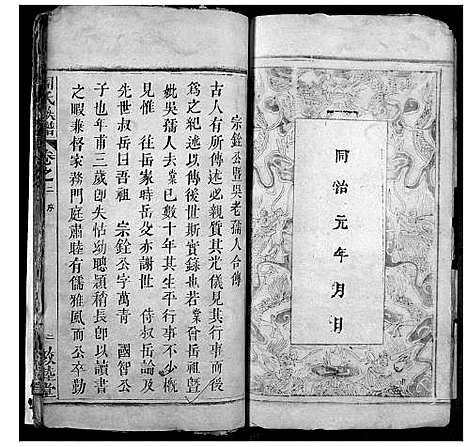 同治元年月日
宗銓公暨吳老孺人合傳
古人有所傳述必其光儀見其行事
爲之紀述以傳後世斯實錄也若業曾岳祖暨
妣吳孺人去業已數十年其生平行事不少概
見惟 往岳家時岳父亦謝世 侍叔岳論及
先世叔岳曰吾祖 宗銓公字萬青 國智公
子也年甫三歲卽失怙幼聰穎稍長卽以讀書
之暇兼督家務門庭肅睦有儒雅風而公卒勤
氏族譜 卷之二 序 二